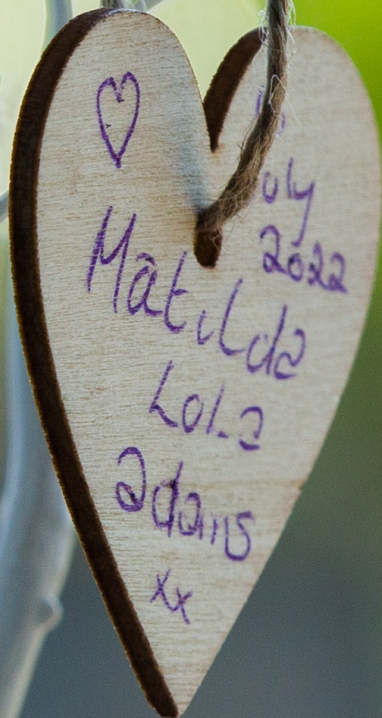 July
2022
Matilda
Lola
adams
xx